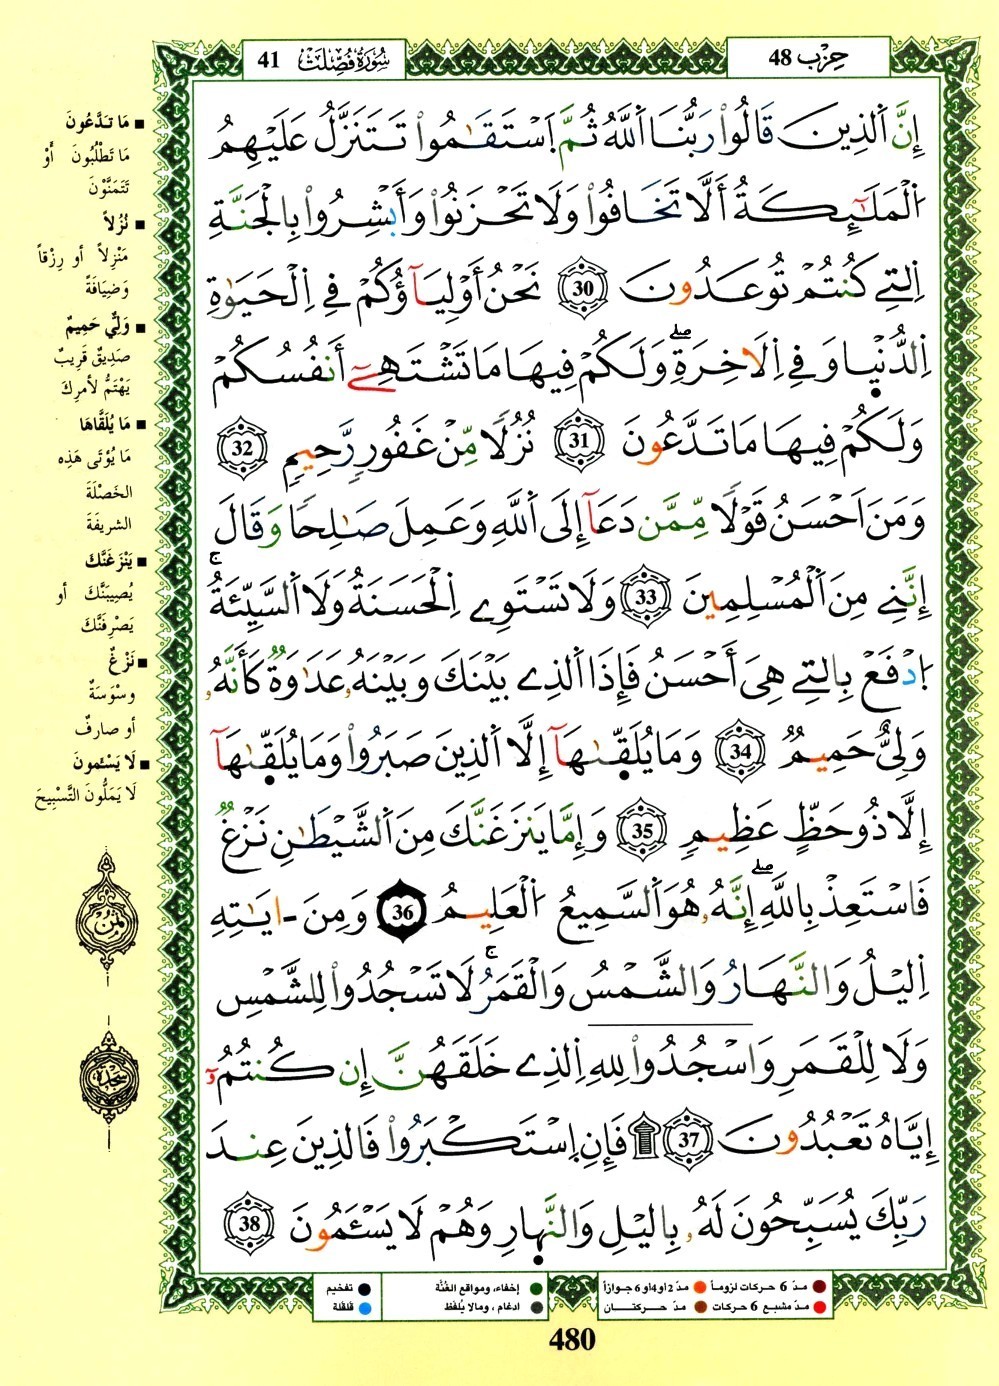 حِزْب 48
سُورَةُ فُصِّلَتْ 41
إِنَّ اَ۬لذِينَ قَالُواْ رَبُّنَا اَ۬للَّهُ ثُمَّ اَ۪سْتَقَٰمُواْ تَتَنَزَّلُ عَلَيْهِمُ
اُ۬لْمَلَٰٓئِكَةُ أَلَّا تَخَافُواْ وَلَا تَحْزَنُواْ وَأَبْشِرُواْ بِالْجَنَّةِ
اِ۬لتِے كُنتُمْ تُوعَدُونَ 30 نَحْنُ أَوْلِيَآؤُكُمْ فِے اِ۬لْحَيَوٰةِ
اِ۬لدُّنْي۪ا وَفِے اِ۬لَاخِرَةِۖ وَلَكُمْ فِيهَا مَا تَشْتَهِےٓ أَنفُسُكُمْ
وَلَكُمْ فِيهَا مَا تَدَّعُونَ 31 نُزُلًا مِّنْ غَفُورٍ رَّحِيمٍ 32
وَمَنَ اَحْسَنُ قَوْلًا مِّمَّن دَعَآ إِلَى اَ۬للَّهِ وَعَمِلَ صَٰلِحًا وَقَالَ
إِنَّنِے مِنَ اَ۬لْمُسْلِمِينَ 33 وَلَا تَسْتَوِے اِ۬لْحَسَنَةُ وَلَا اَ۬لسَّيِّئَةُۚ
اُ۪دْفَعْ بِالتِے هِىَ أَحْسَنُ فَإِذَا اَ۬لذِے بَيْنَكَ وَبَيْنَهُۥ عَدَٰوَةٌ كَأَنَّهُۥ
وَلِىٌّ حَمِيمٌ 34 وَمَا يُلَقّ۪ىٰهَآ إِلَّا اَ۬لذِينَ صَبَرُواْ وَمَا يُلَقّ۪ىٰهَآ
إِلَّا ذُو حَظٍّ عَظِيمٍ 35 وَإِمَّا يَنزَغَنَّكَ مِنَ اَ۬لشَّيْطَٰنِ نَزْغٌ
فَاسْتَعِذْ بِاللَّهِۖ إِنَّهُۥ هُوَ اَ۬لسَّمِيعُ اُ۬لْعَلِيمُ 36 وَمِنَ ـ ايَٰتِهِ
اِ۬ليْلُ وَالنَّهَارُ وَالشَّمْسُ وَالْقَمَرُۚ لَا تَسْجُدُواْ لِلشَّمْسِ
وَلَا لِلْقَمَرِ وَاسْجُدُواْ لِلهِ اِ۬لذِے خَلَقَهُنَّ إِن كُنتُمُۥٓ
إِيَّاهُ تَعْبُدُونَ 37 ۩ فَإِنِ اِ۪سْتَكْبَرُواْ فَالذِينَ عِندَ
رَبِّكَ يُسَبِّحُونَ لَهُۥ بِاليْلِ وَالنَّه۪ارِ وَهُمْ لَا يَسْـَٔمُونَ 38
■ مَا تَدَّعُونَ
مَا تَطْلُبُونَ أَوْ
تَتَمَنَّوْنَ
■ نُزُلاً
مَنْزِلاً أو رِزْقاً
وَضِيَافَةً
■ وَلِيٌّ حَمِيمٌ
صَدِيقٌ قَرِيبٌ
يَهْتَمُّ لأمرِكَ
■ مَا يُلَقَّاهَا
مَا يُؤْتَى هَذِه
الخَصْلَةَ
الشريفَةَ
■ يَنْزَغَنَّكَ
يُصِيبَنَّكَ أو
يَصْرِفَنَّكَ
■ نَزْغٌ
وسْوَسَةٌ
أو صارِفٌ
■ لَا يَسْئَمونَ
لَا يَمَلُّونَ التَّسْبِيحَ
ثمن
سجدة
مدّ 6 حركات لزوماً مدّ 2 أو 4 أو 6 جوازاً
مدّ مشبع 6 حركات مدّ حركتان
إخفاء، ومواقع الغُنَّة
ادغام ، ومالا يُلفظ
تفخيم
قلقلة
480